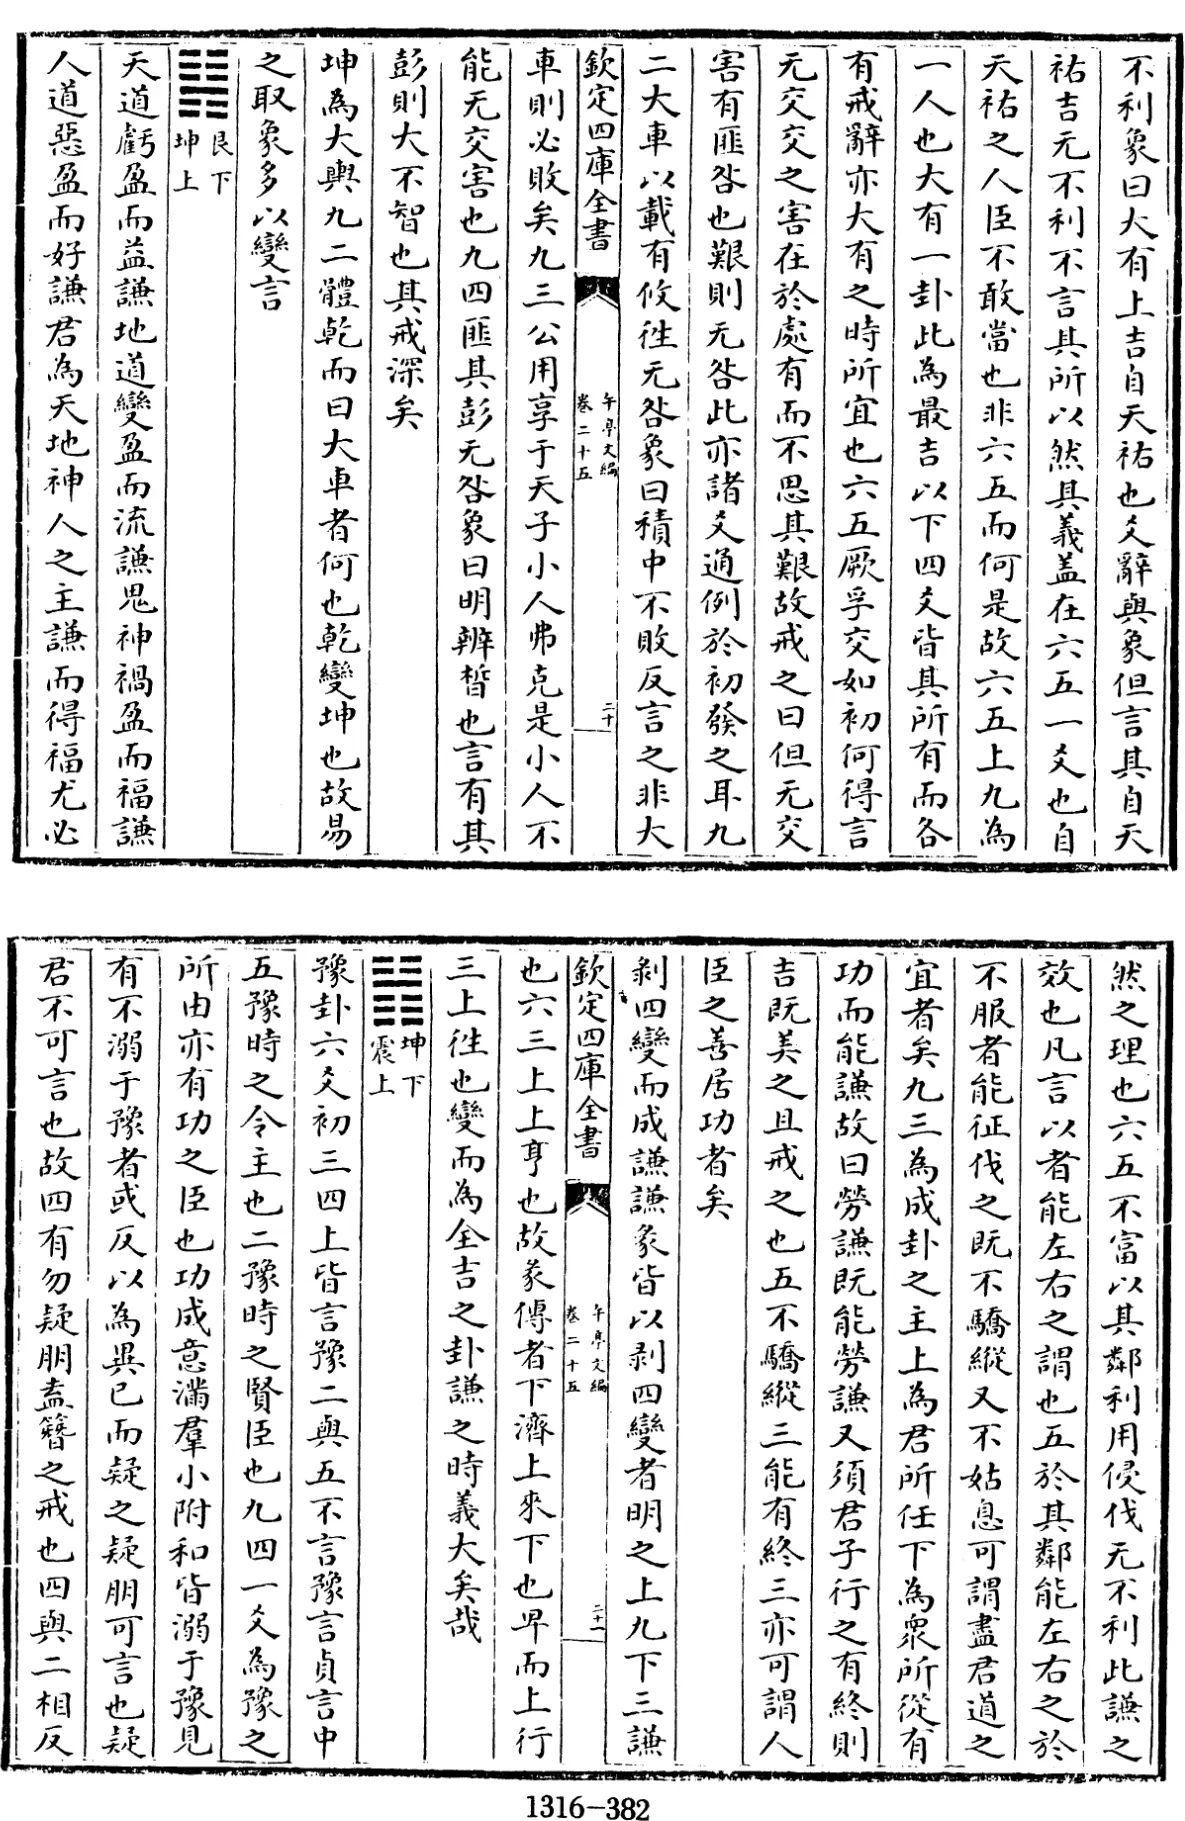 不利象曰大有上吉自天祐也爻辭與象但言其自天
祐吉无不利不言其所以然其義盖在六五一爻也自
天祐之人臣不敢當也非六五而何是故六五上九為
一人也大有一卦此為最吉以下四爻皆其所有而各
有戒辭亦大有之時所宜也六五厥孚交如初何得言
无交交之害在於處有而不思其艱故戒之曰但无交
害有匪咎也艱則无咎此亦諸爻通例於初發之耳九
二大車以載有攸往无咎象曰積中不敗反言之非大
欽定四庫全書
午亭文編
卷二十五
二十
車則必敗矣九三公用享于天子小人弗克是小人不
能无交害也九四匪其彭无咎象曰明辨晳也言有其
彭則大不智也其戒深矣
坤為大輿九二體乾而曰大車者何也乾變坤也故易
之取象多以變言
䷎
艮下
坤上
天道虧盈而益謙地道變盈而流謙鬼神禍盈而福謙
人道惡盈而好謙君為天地神人之主謙而得福尤必
然之理也六五不富以其鄰利用侵伐无不利此謙之
效也凡言以者能左右之謂也五於其鄰能左右之於
不服者能征伐之既不驕縱又不姑息可謂盡君道之
宜者矣九三為成卦之主上為君所任下為衆所從有
功而能謙故曰勞謙既能勞謙又須君子行之有終則
吉既美之且戒之也五不驕縱三能有終三亦可謂人
臣之善居功者矣
剝四變而成謙謙彖皆以剥四變者明之上九下三謙
欽定四庫全書
午亭文編
卷二十五
二十一
也六三上上亨也故彖傳者下濟上來下也卑而上行
三上往也變而為全吉之卦謙之時義大矣哉
䷏
坤下
震上
豫卦六爻初三四上皆言豫二與五不言豫言貞言中
五豫時之令主也二豫時之賢臣也九四一爻為豫之
所由亦有功之臣也功成意滿羣小附和皆溺于豫見
有不溺于豫者或反以為異己而疑之疑朋可言也疑
君不可言也故四有勿疑朋盍簪之戒也四與二相反
1316-382